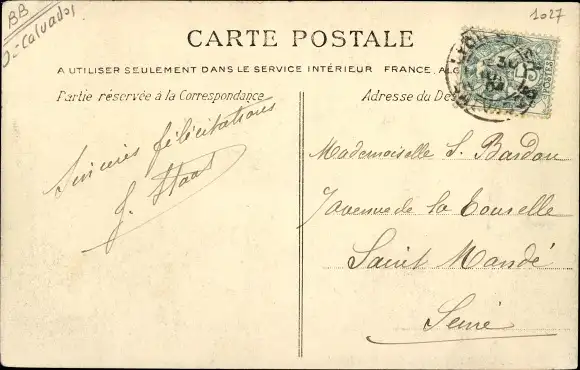 BB
Calvados
1027
CARTE POSTALE
A UTILISER SEULEMENT DANS LE SERVICE INTÉRIEUR FRANCE, ALG
Partie réservée à la Correspondance
Adresse du Des
Sincères félicitations
J. Haas
Mademoiselle S. Bardon
7 avenue de la Tourelle
Saint Mandé
Seine